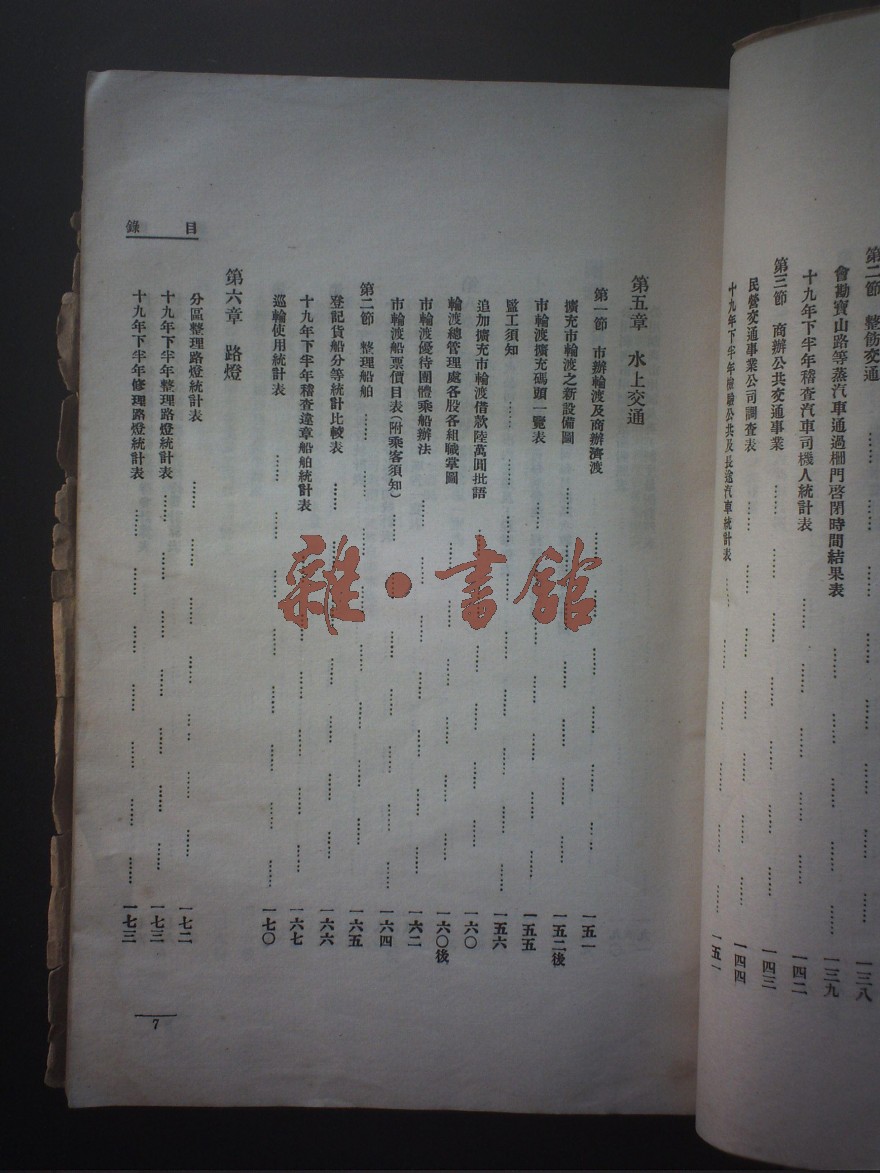 第二節 整飭交通 一三八
會勘寶山路等蒸汽車通過柵門啓閉時間結果表 一三九
十九年下半年稽查汽車司機人統計表 一四二
第三節 商辦公共交通事業 一四三
民營交通事業公司調查表 一四四
十九年下半年檢驗公共及長途汽車統計表 一五一
第五章 水上交通
第一節 市辦輪渡及商辦濟渡 一五一
擴充市輪渡之新設備圖 一五二後
市輪渡擴充碼頭一覽表 一五五
監工須知 一五六
追加擴充市輪渡借款陸萬圓批語 一六〇
輪渡總管理處各股各組職掌圖 一六〇後
市輪渡優待團體乘船辦法 一六二
市輪渡船票價目表(附乘客須知) 一六四
第二節 整理船舶 一六五
登記貨船分等統計比較表 一六六
十九年下半年稽查違章船舶統計表 一六七
巡輪使用統計表 一七〇
第六章 路燈
分區整理路燈統計表 一七二
十九年下半年整理路燈統計表 一七三
十九年下半年修理路燈統計表 一七三
目錄
7
雜·書館